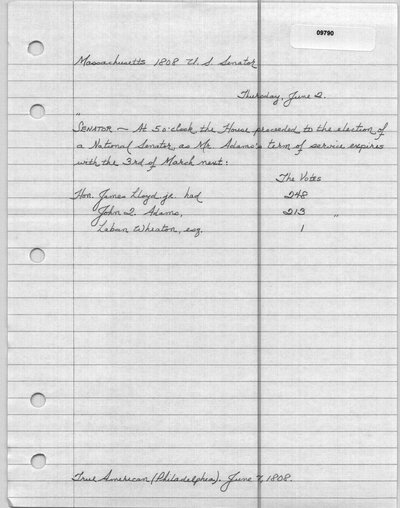 09790
Massachusetts 1808 U. S. Senator
Thursday, June 2.
"
SENATOR — At 5 o'clock the House proceeded to the election of
a National Senator, as Mr. Adams's term of service expires
with the 3rd of March next:
The Votes
Hon. James Lloyd jr. had 248
John Q. Adams, 213 "
Laban Wheaton, esq. 1
True American (Philadelphia). June 7, 1808.